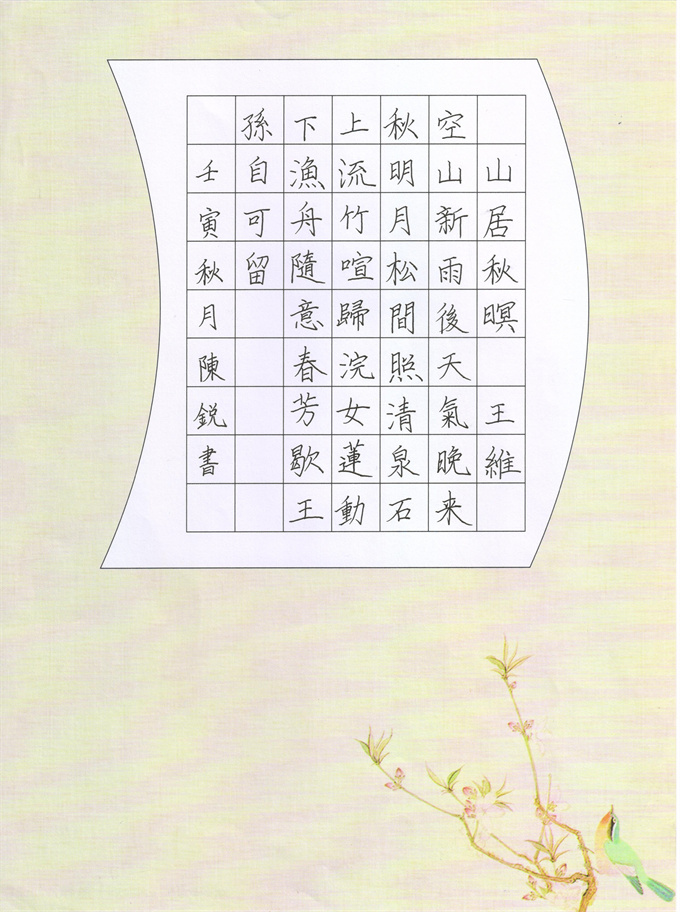 山居秋暝 王維
空山新雨後天氣晚来
秋明月松間照清泉石
上流竹喧歸浣女蓮動
下漁舟隨意春芳歇王
孫自可留
壬寅秋月陳鋭書